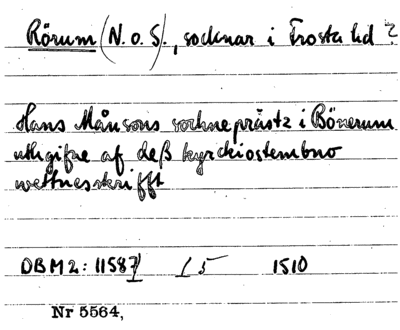 Rörum (N. o. S)., socknar i Frosta hd?
Hans Månsons sockneprästz i Bönerum
uthgifne af deß kyrckiostembno
wettnesskrifft
DBM 2: 11587 1/5 1510
Nr 5564,